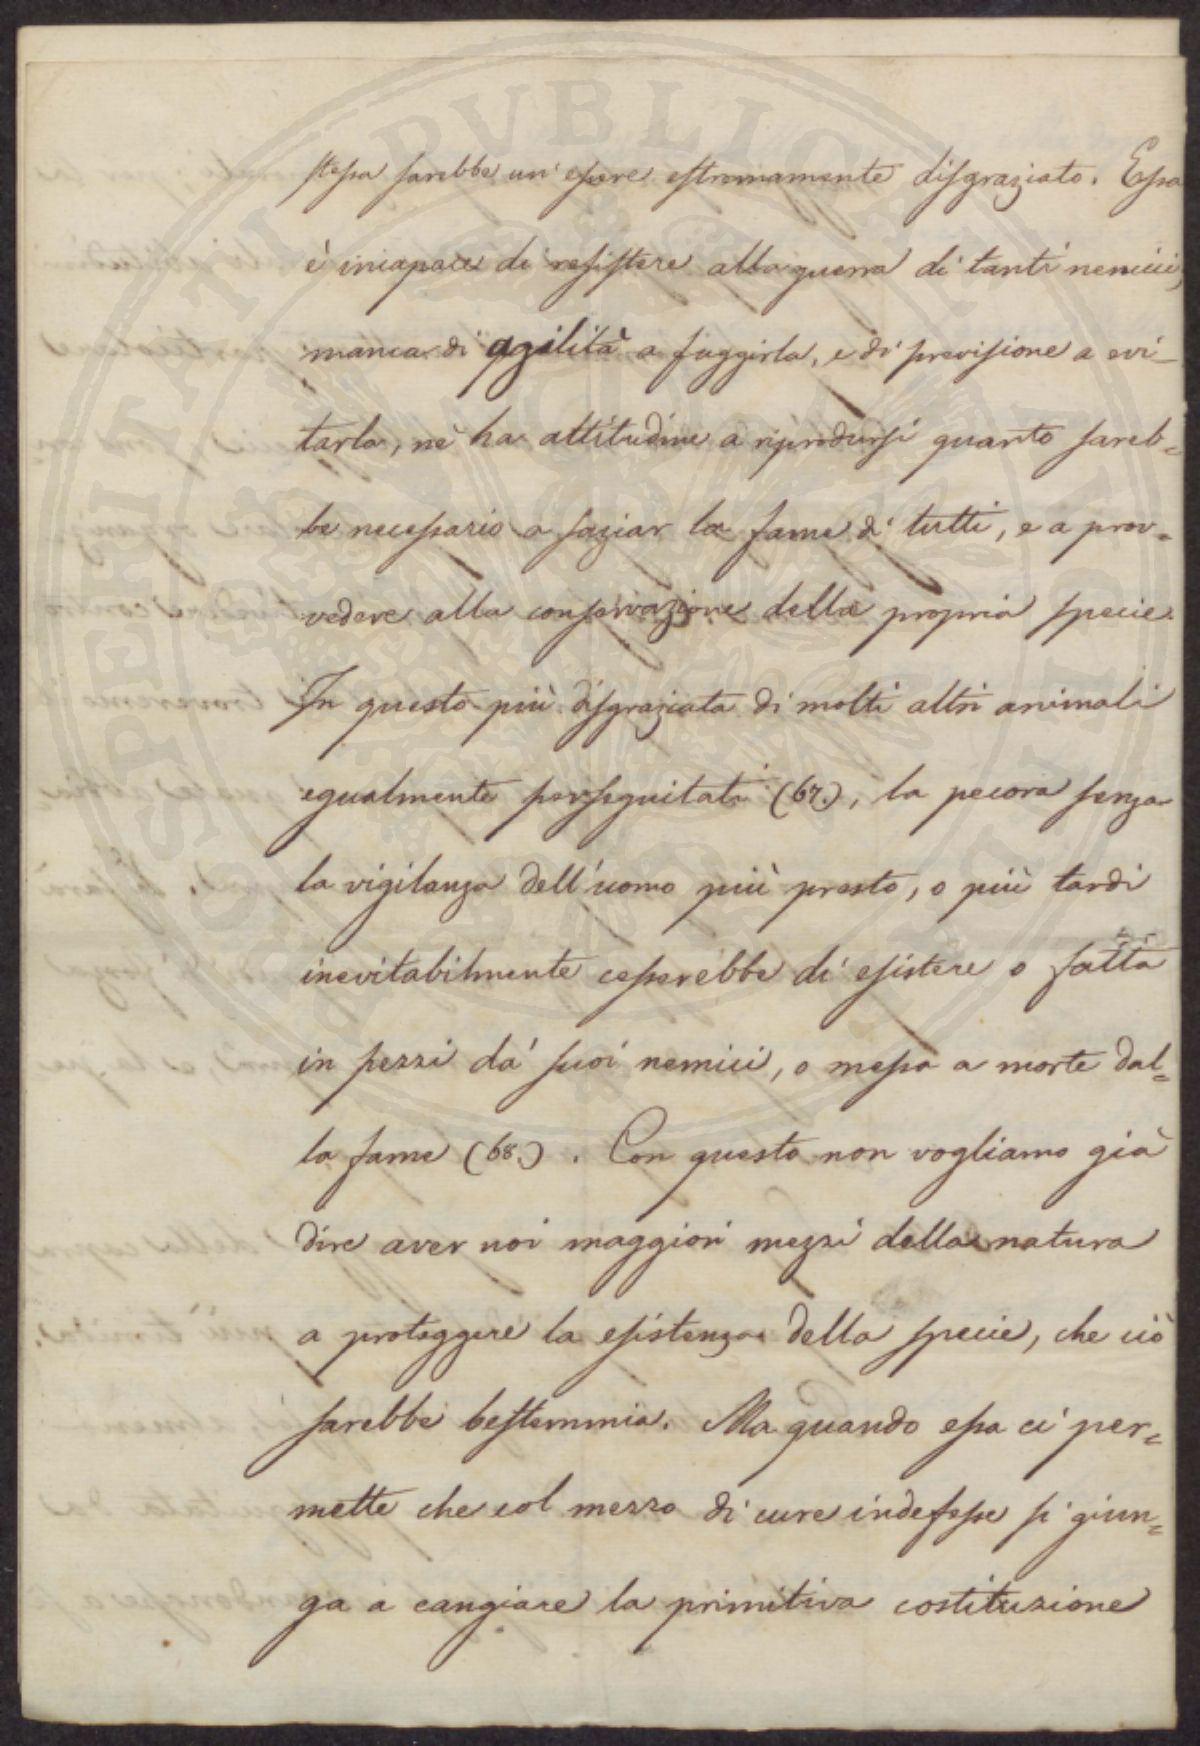 stessa sarebbe un' essere estremamente disgraziato. Essa
è incapace di resistere alla guerra di tanti nemici,
manca di agilità a fuggirla, e di previsione a evi-
tarla, nè ha attitudine a riprodursi quanto sareb=
be necessario a saziar la fame di tutti, e a prov=
vedere alla conservazione della propria specie.
In questo più disgraziata di molti altri animali
egualmente perseguitati (67.), la pecora senza
la vigilanza dell'uomo più presto, o più tardi
inevitabilmente cesserebbe di esistere o fatta
in pezzi da' suoi nemici, o messa a morte dal=
la fame (68.). Con questo non vogliamo già
dire aver noi maggiori mezzi della natura
a proteggere la esistenza della specie, che ciò
sarebbe bestemmia. Ma quando essa ci per=
mette che col mezzo di cure indefesse si giun=
ga a cangiare la primitiva costituzione